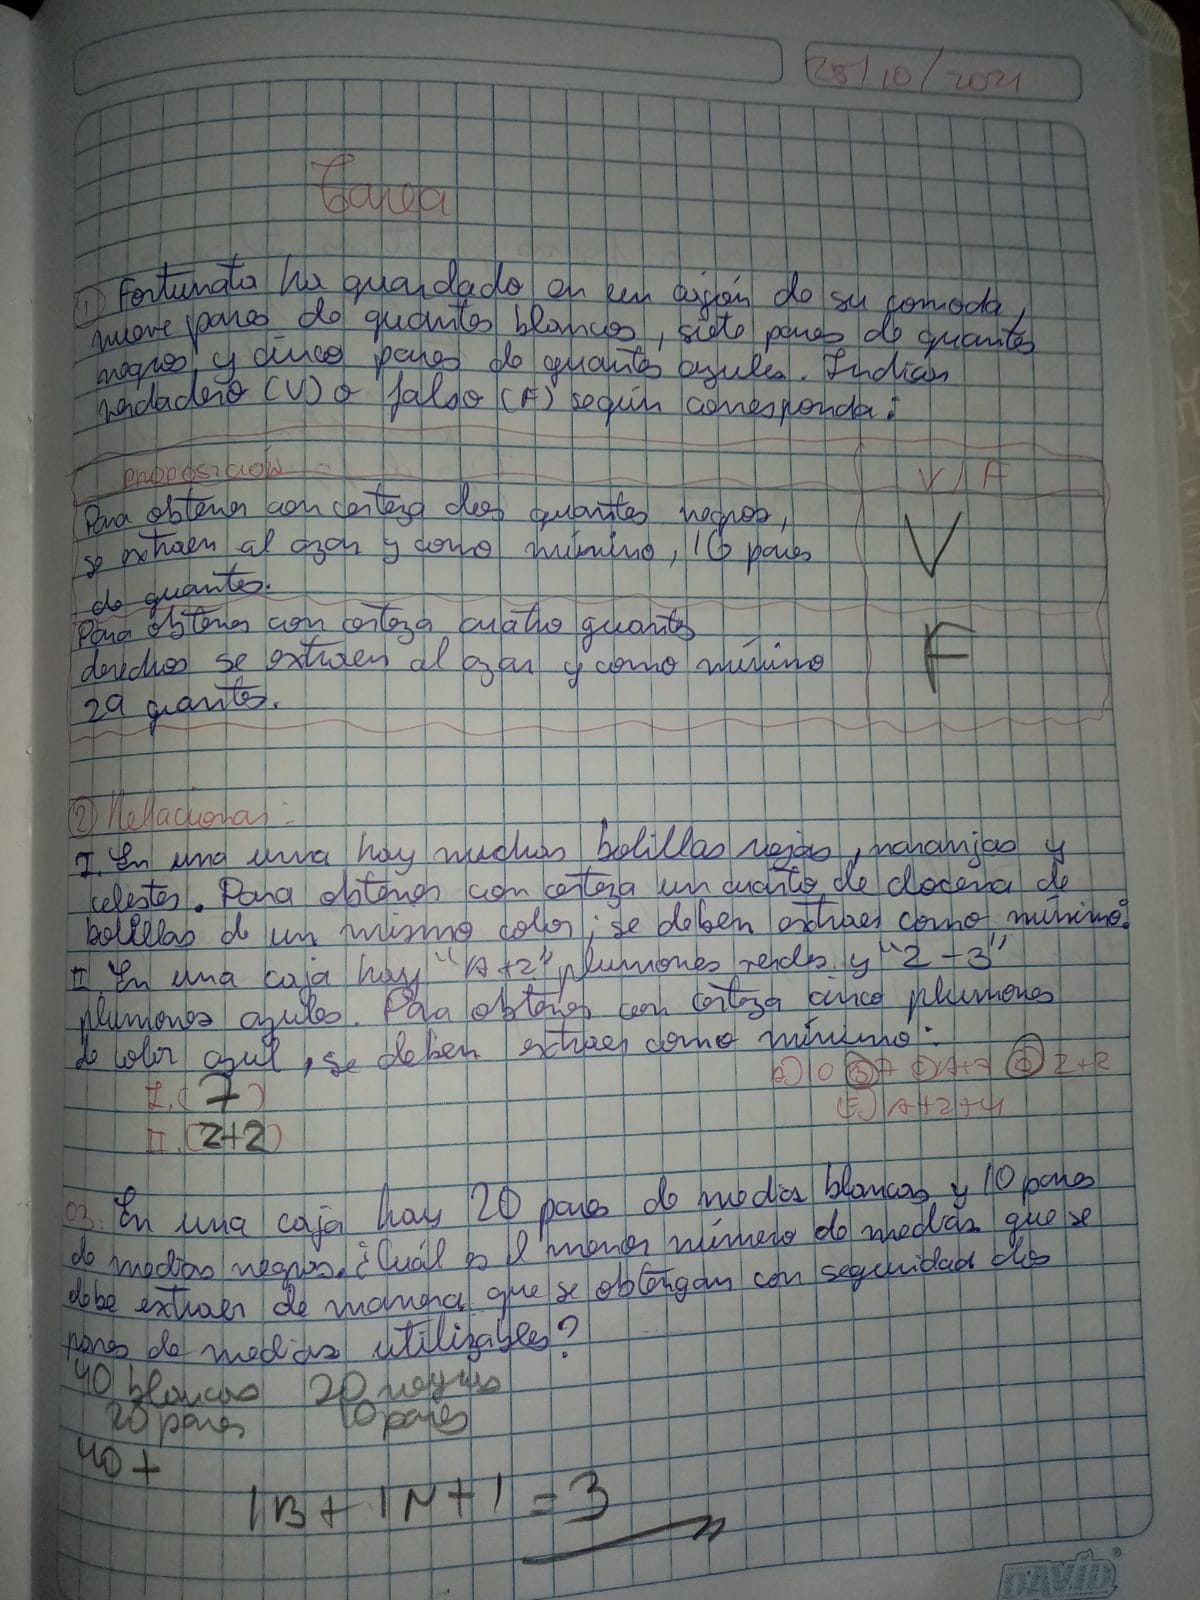 25/10/2021
Tarea
① Fortunato ha guardado en un cajón de su comoda,
nueve pares de guantes blancos, siete pares de guantes
negros y cinco pares de guantes azules. Indican
verdadero (V) o falso (F) según corresponda:
PROPOSICION V / F
Para obtener con certeza dos guantes negros,
se extraen al azar y como mínimo, 16 pares V
de guantes.
Para obtener con certeza cuatro guantes
derechos se extraen al azar y como mínimo F
29 guantes.
② Relacionar:
I. En una urna hay muchas bolillas rojas, naranjas y
celestes. Para obtener con certeza un cuarto de docena de
bolillas de un mismo color; se deben extraer como mínimo:
II. En una caja hay "A+2" plumones verdes y "Z-3"
plumones azules. Para obtener con certeza cinco plumones
de color azul, se deben extraer como mínimo:
A) 10 B) 7 C) A+7 D) Z+2
I. (7) E) A+Z+4
II. (Z+2)
03. En una caja hay 20 pares de medias blancas y 10 pares
de medias negras. ¿Cuál es el menor número de medias que se
debe extraer de manera que se obtengan con seguridad dos
pares de medias utilizables?
40 blancas 20 negras
20 pares 10 pares
40 +
1B + 1N + 1 = 3
DAVID